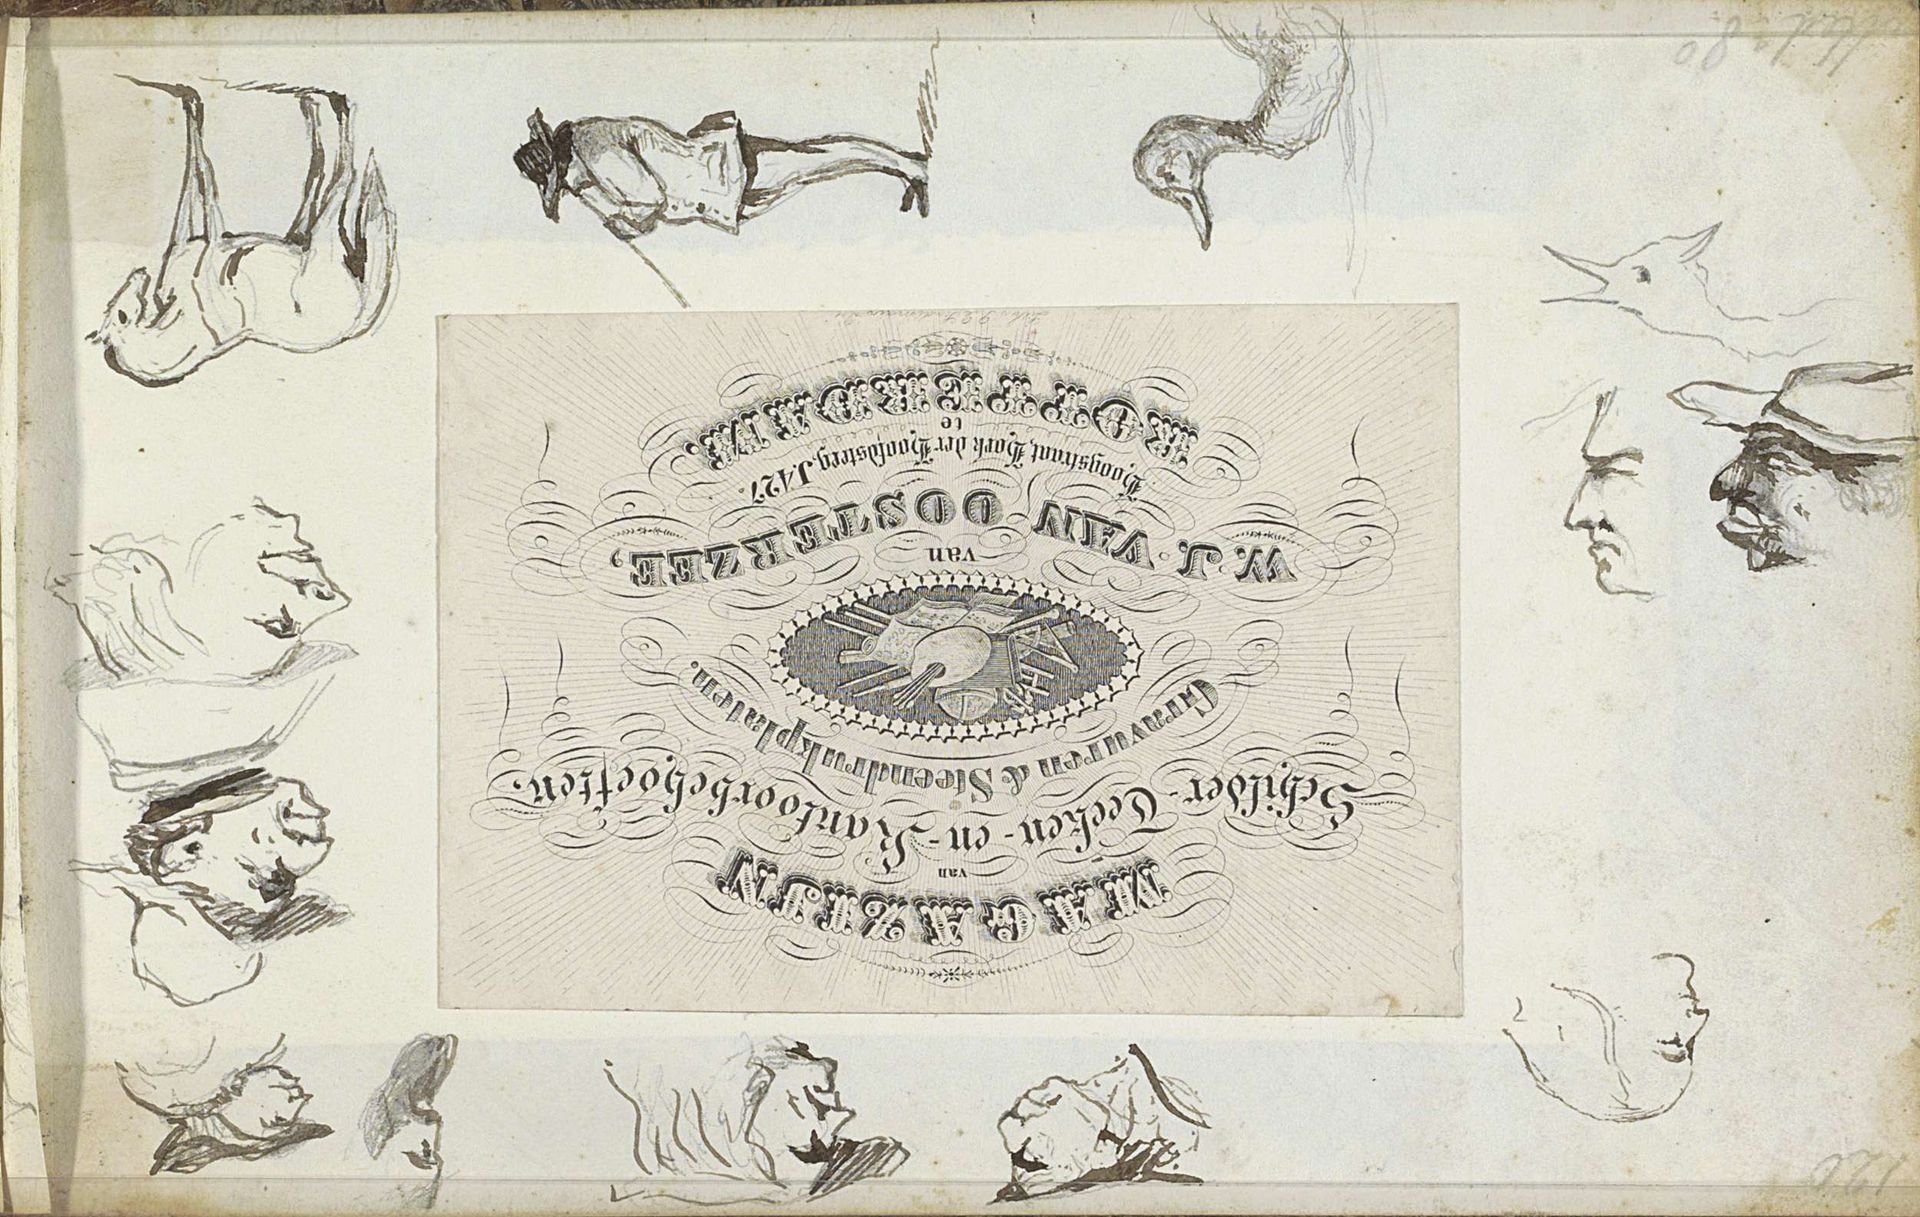 MAGAZIJN
van
Schilder-Teeken-en-Kantoorbehoeften,
Gravuren & Steendrukplaten.
van
W. J. VAN OOSTERZEE,
Hoogstraat, Hoek der Hoofdsteeg, J.427.
te
ROTTERDAM.